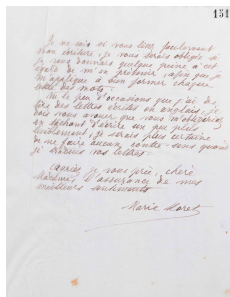 151
Je ne sais si vous lisez facilement
mon écriture, je vous serais obligée si
je vous donnais quelque peine à cet
égard de m'en prévenir, afin que je
m'applique à bien former chaque
lettre des mots.
Vu le peu d'occasions que j'ai de
lire des lettres écrites en anglais, je
dois vous avouer que vous m'obligeriez
en tâchant d'écrire un peu plus
lisiblement, je serais plus certaine
de ne faire aucun contre-sens quand
je traduis vos lettres.
Agréez je vous prie, chère
Madame, l'assurance de mes
meilleurs sentiments
Marie Moret